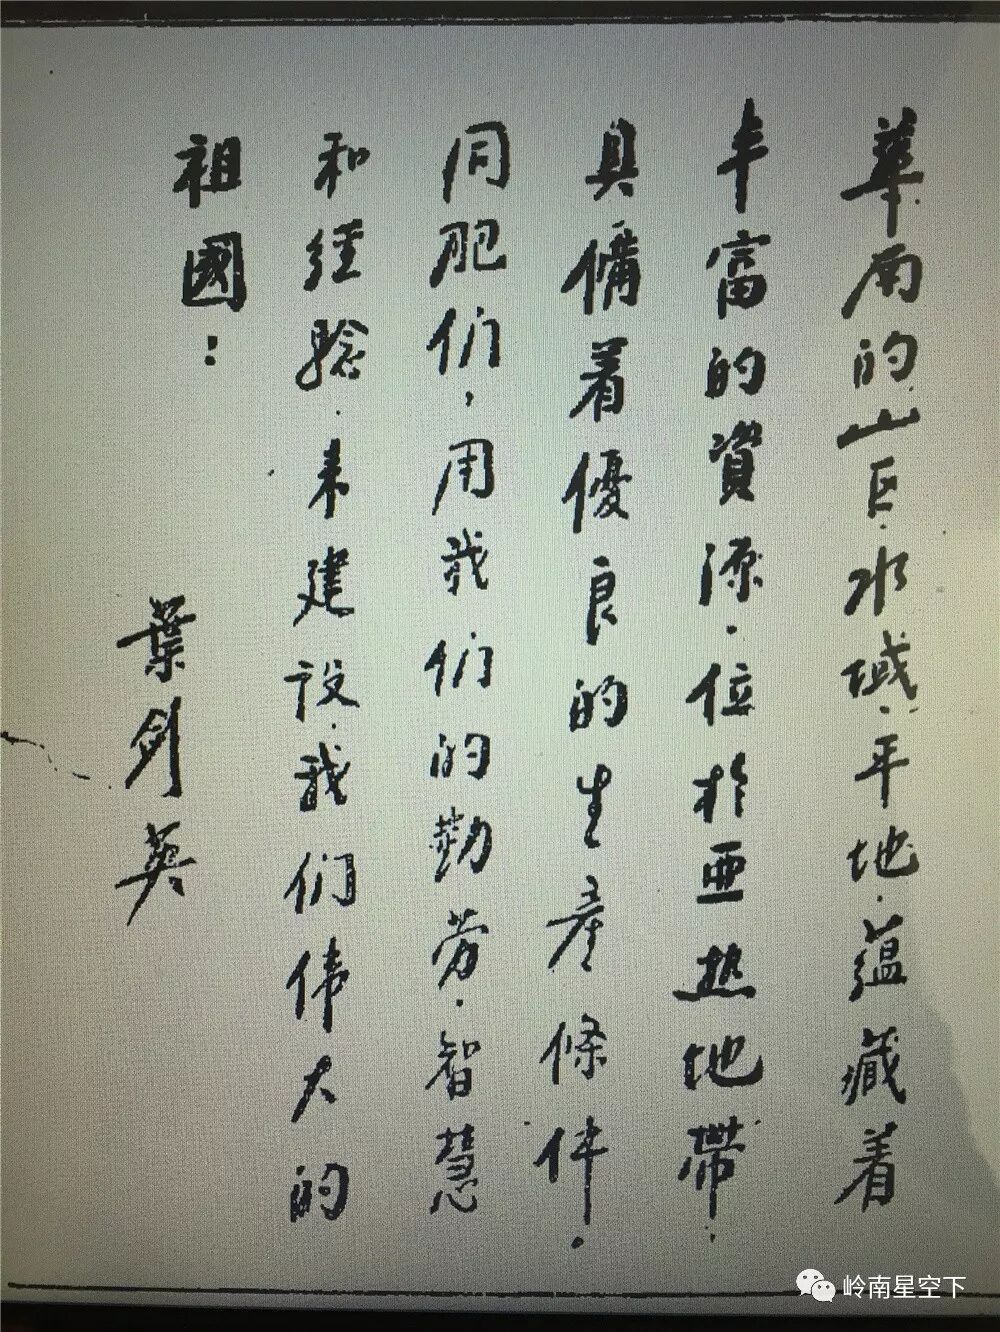 華南的山丘.水域.平地.蕴藏着
丰富的資源.位於亜热地帶.
具備着優良的生産條件.
同胞们,用我们的勤劳.智慧
和经验.来建設.我们伟大的
祖國:
葉剑英
岭南星空下